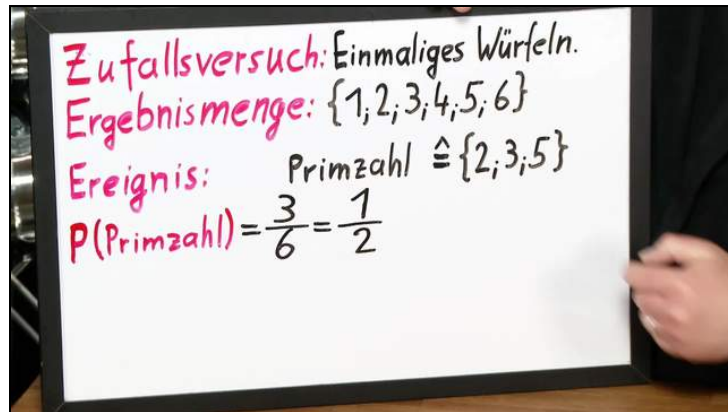 Zufallsversuch: Einmaliges Würfeln.
Ergebnismenge: {1;2;3;4;5;6}
Ereignis: Primzahl ≙ {2;3;5}
P(Primzahl) = 3/6 = 1/2